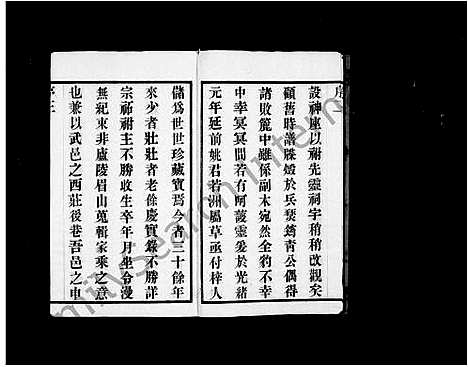 設神座以祔先靈祠宇稍稍改觀矣
顧舊時譜牒燬於兵燹鑄青公偶得
諸敗簏中雖係副本宛然全豹不幸
中幸冥冥間若有阿護靈爰於光緒
元年延前姚君若洲屬草亟付梓人
儲為世世珍藏寶焉今者三十餘年
來少者壯壯者老徐慶實繇不勝詳
宗祏祔主不勝收生卒年月坐令漫
無紀束非盧陵眉山蒐輯家乘之意
也兼以武邑之西莊後巷吾邑之車